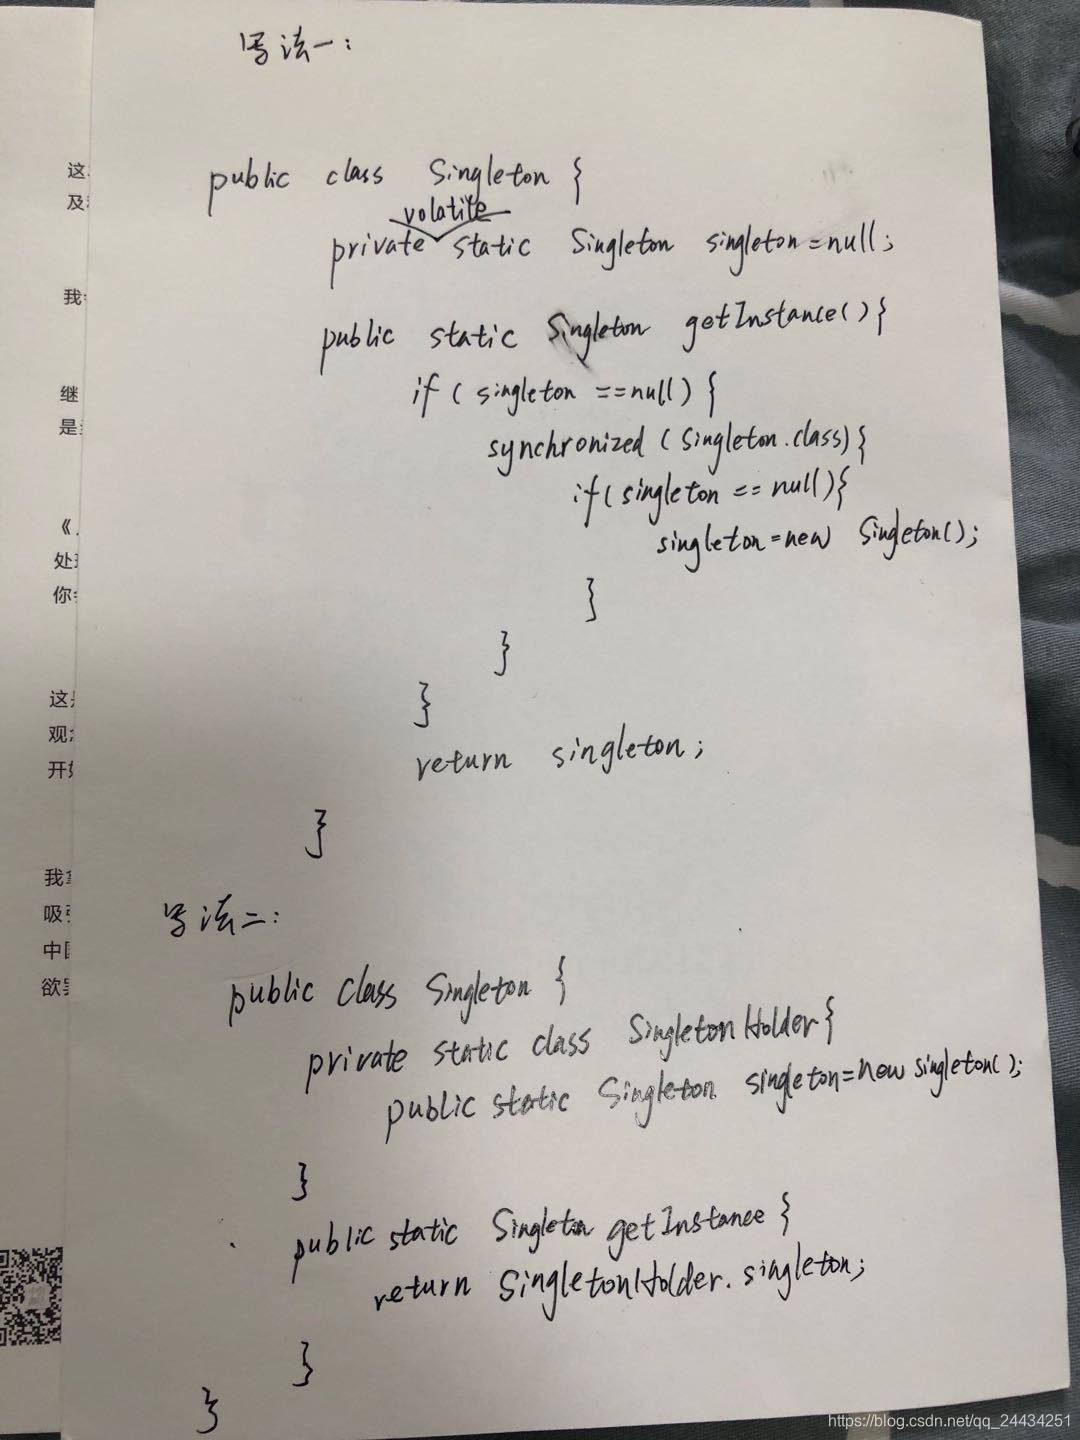 写法一：
public class Singleton {
volatile
private static Singleton singleton=null;
public static Singleton getInstance(){
if ( singleton ==null) {
synchronized (Singleton.class){
if(singleton == null){
singleton=new Singleton();
}
}
}
return singleton;
}
写法二：
public class Singleton {
private static class SingletonHolder{
public static Singleton singleton=new singleton();
}
public static Singleton getInstance {
return SingletonHolder.singleton;
}
}
这
及
我
继
是
《
处
你
这
观
开
我
吸
中
欲
https://blog.csdn.net/qq_24434251